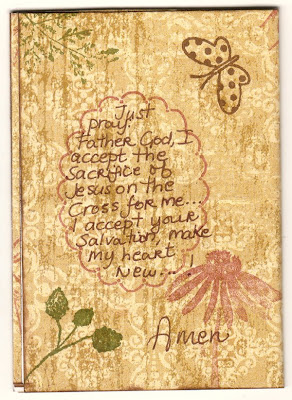 Just
pray
Father God, I
accept the
Sacrifice of
Jesus on the
Cross for me...
I accept your
Salvation, make
my heart
New....!
Amen